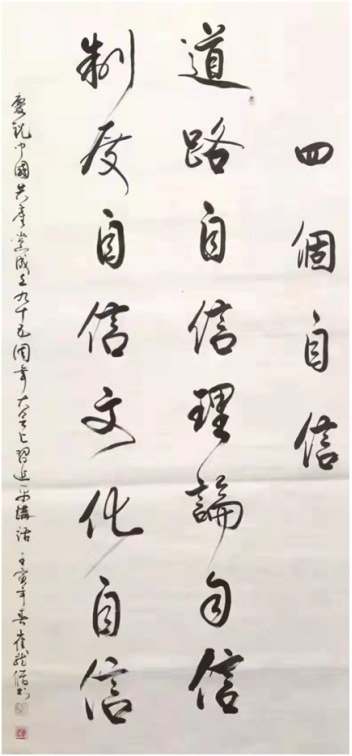 四個自信
道路自信理論自信
制度自信文化自信
慶祝中國共產黨成立九十五周年大会上習近平講話 壬寅年春